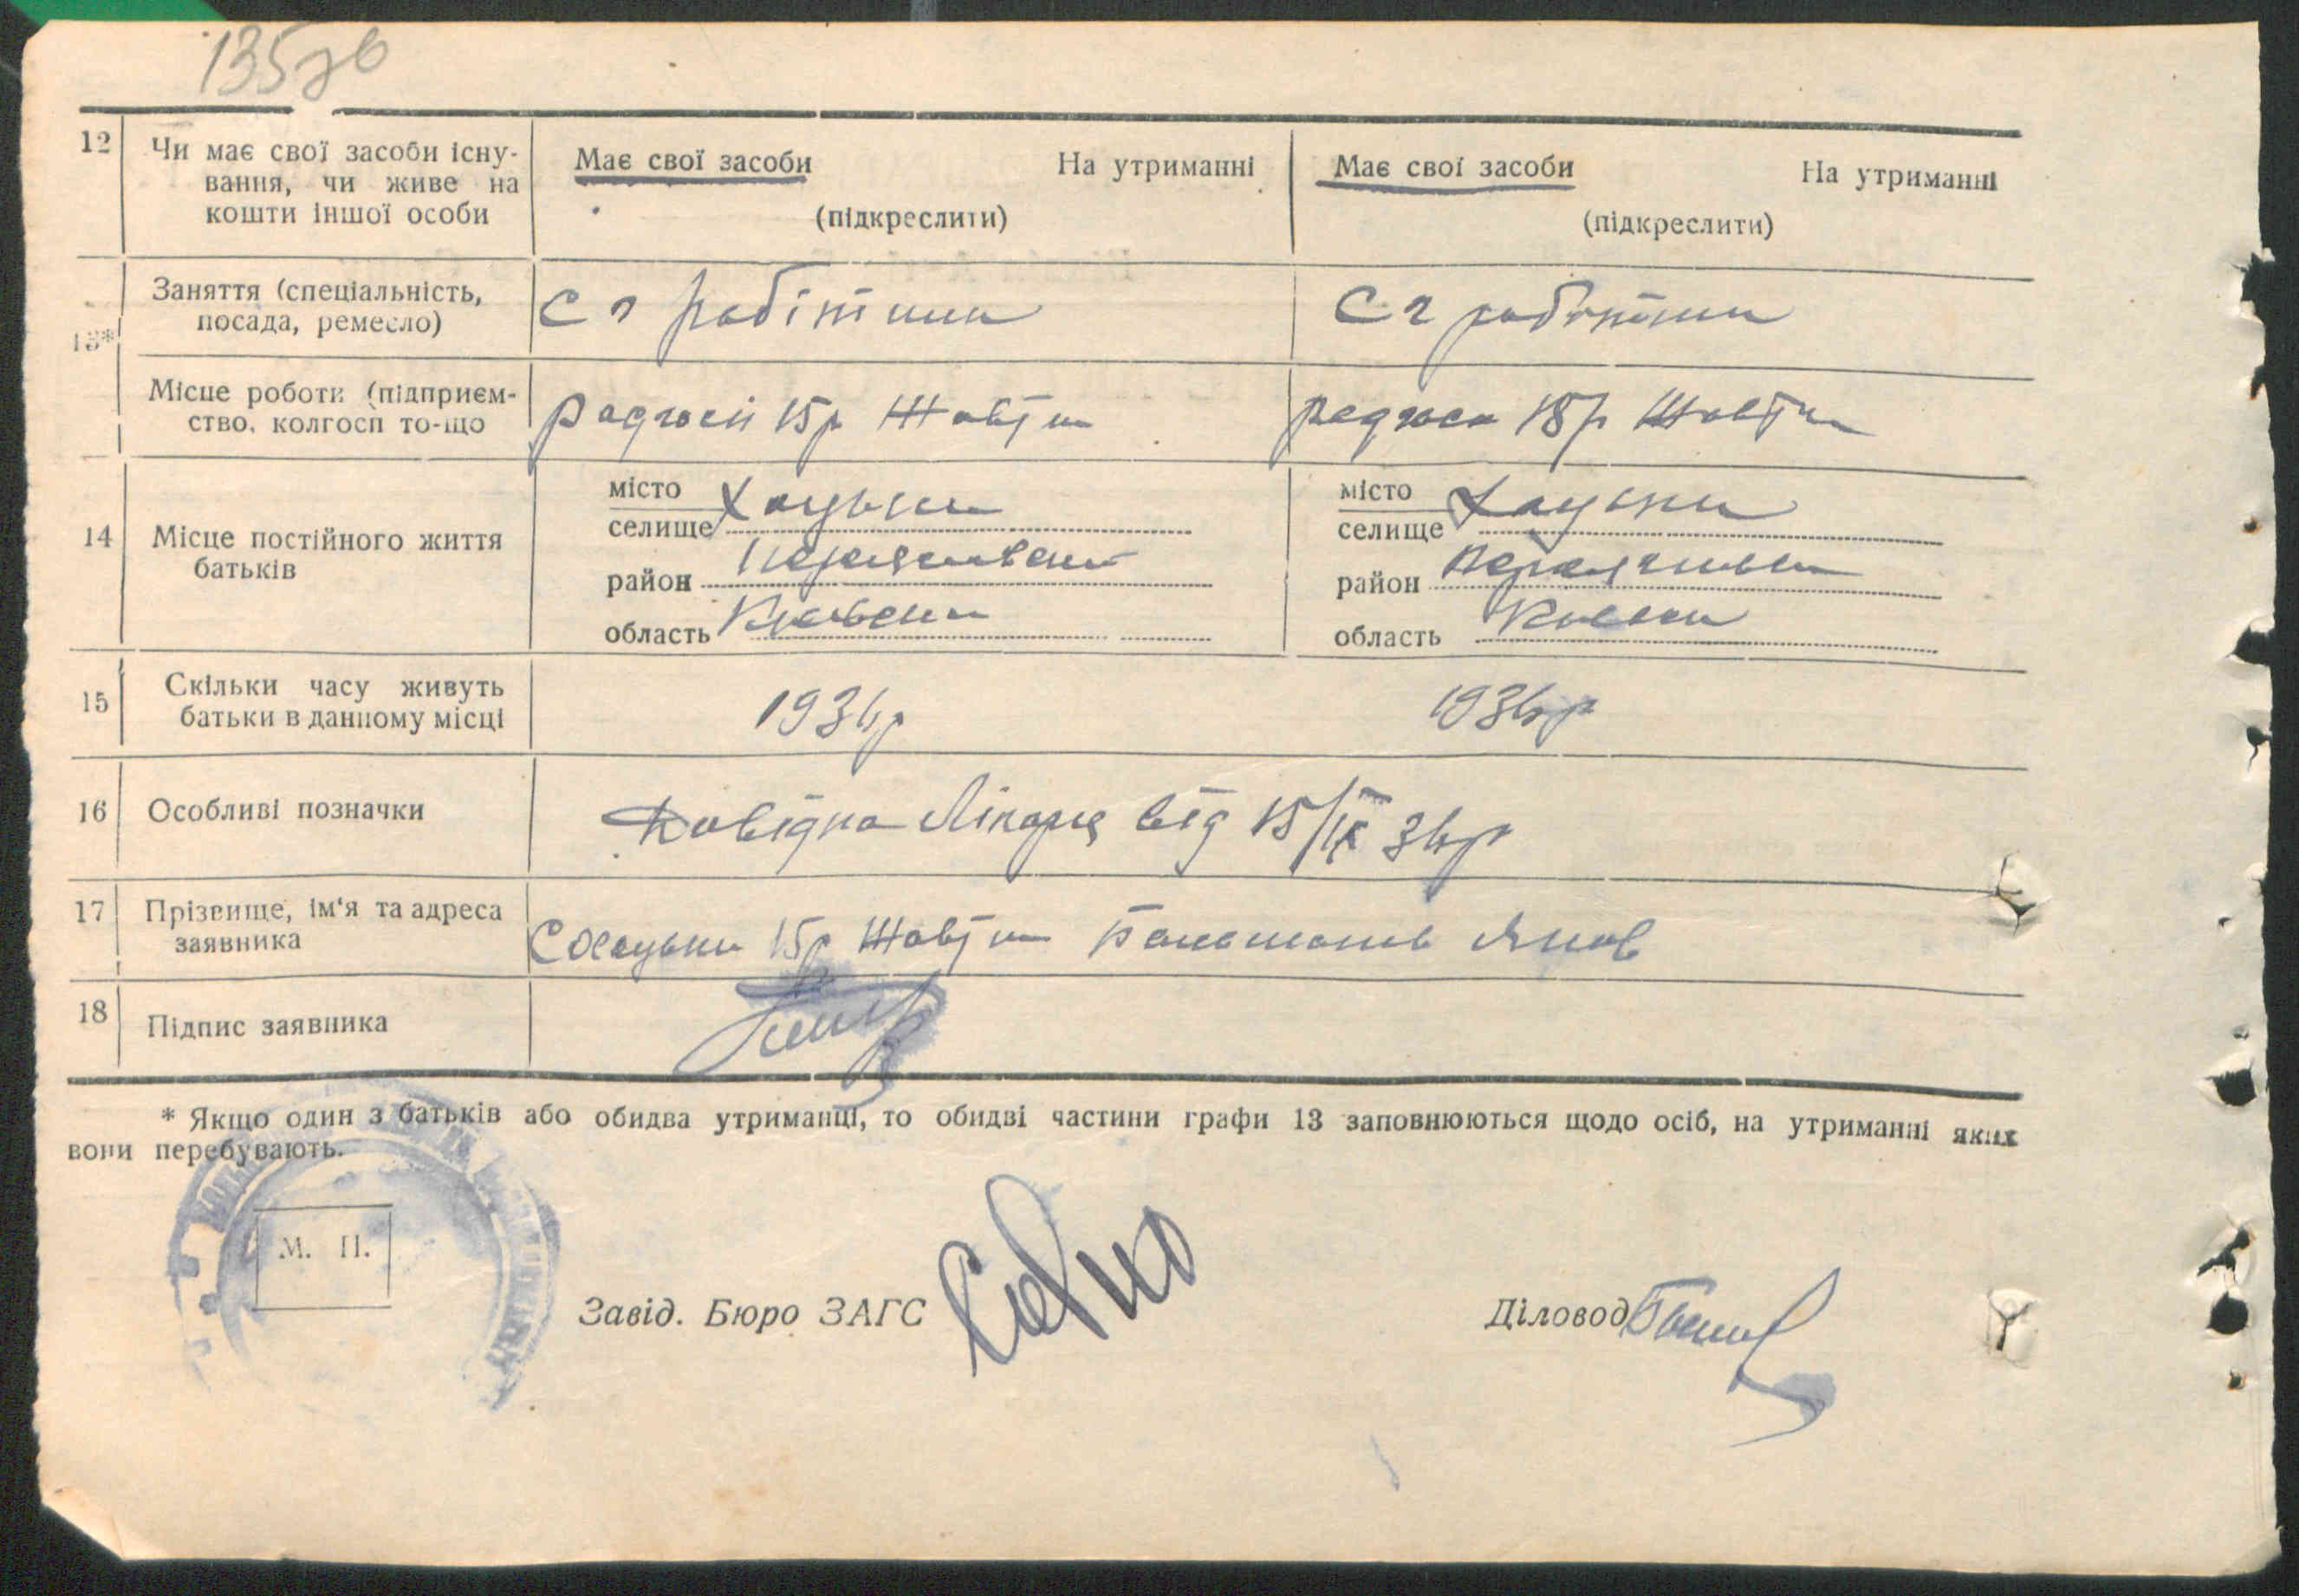 135зв
12 Чи має свої засоби існу-
вання, чи живе на
кошти іншої особи
Має свої засоби На утриманні
(підкреслити)
Має свої засоби На утриманні
(підкреслити)
13* Заняття (спеціальність,
посада, ремесло)
с г робітник
с г робітник
Місце роботи (підприєм-
ство, колгосп то-що
радгосп 15р Жовтня
радгосп 15р Жовтня
14 Місце постійного життя
батьків
місто
селище Хоцьки
район Переяславський
область Київськ
місто
селище Хоцьки
район Переяславськ
область Київськ
15 Скільки часу живуть
батьки в данному місці
1936р
1936р
16 Особливі позначки
Довідка Лікаря від 15/IX 36р
17 Прізвище, ім‘я та адреса
заявника
С Хоцьки 15р Жовтня Яков
18 Підпис заявника
* Якщо один з батьків або обидва утриманці, то обидві частини графи 13 заповнюються щодо осіб, на утриманні яких
вони перебувають.
М. П.
Завід. Бюро ЗАГС
Діловод